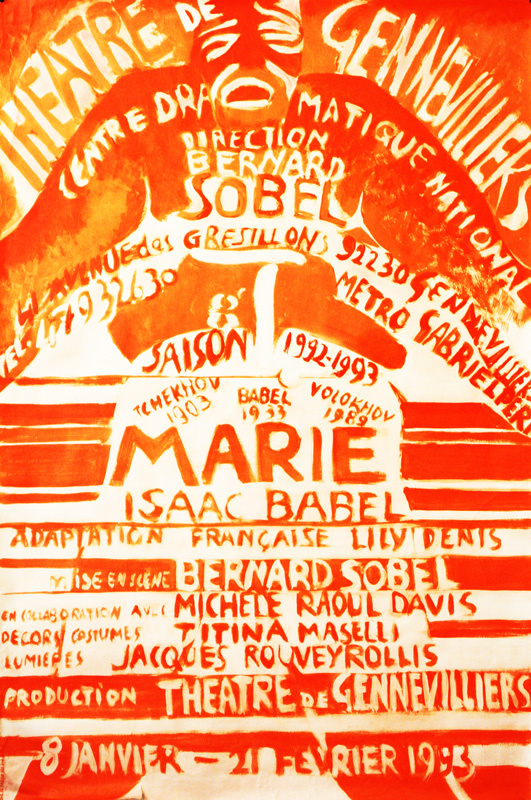 THEATRE DE GENNEVILLIERS
CENTRE DRAMATIQUE NATIONAL
DIRECTION
BERNARD
SOBEL
41 AVENUE des GRESILLONS 92230 GENNEVILLIERS
TEL. METRO GABRIEL PERI
SAISON 1992-1993
TCHEKHOV BABEL VOLOKHOV
1903 1933 1989
MARIE
ISAAC BABEL
ADAPTATION FRANÇAISE LILY DENIS
MISE EN SCÈNE BERNARD SOBEL
EN COLLABORATION AVEC MICHÈLE RAOUL DAVIS
DECORS COSTUMES TITINA MASELLI
LUMIÈRES JACQUES ROUVEYROLLIS
PRODUCTION THEATRE DE GENNEVILLIERS
8 JANVIER — 21 FEVRIER 1993